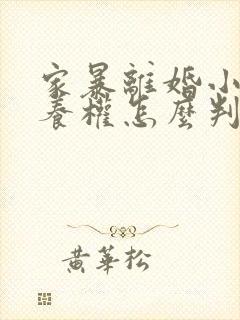 家暴離婚小
養權怎麼判
黃華松